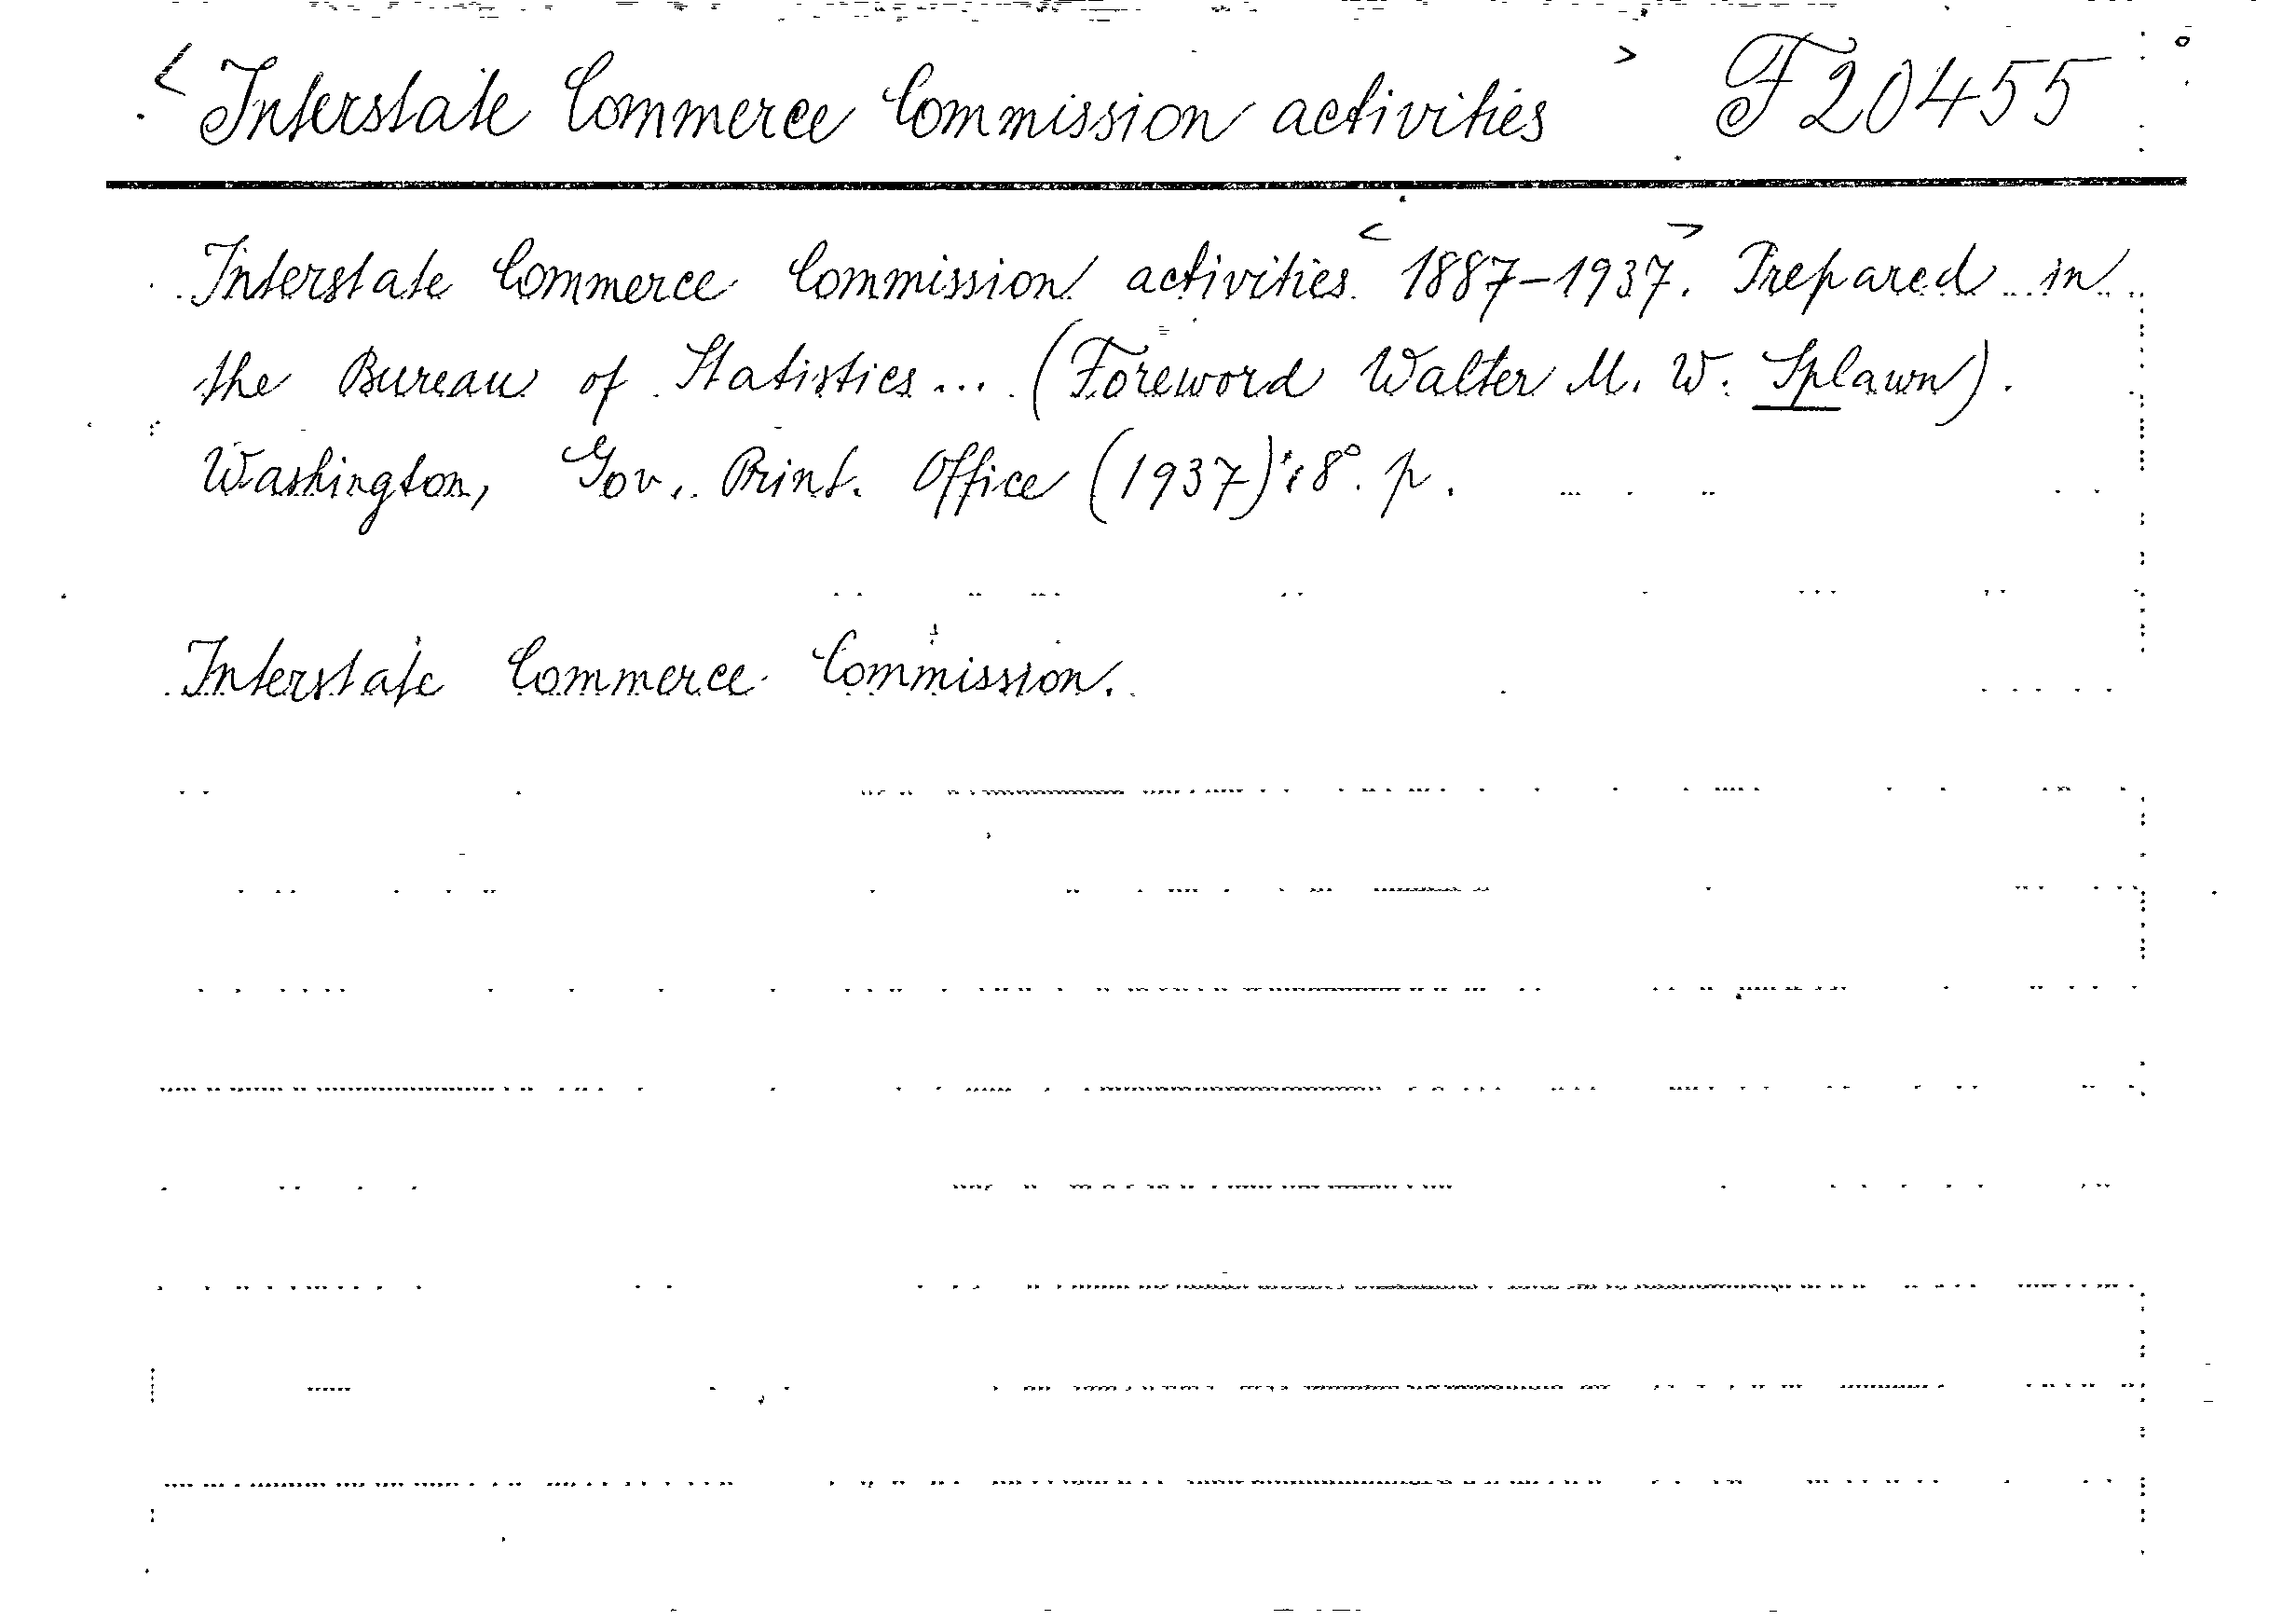 < Interstate Commerce Commission activities > F 20455
Interstate Commerce Commission activities <1887-1937>. Prepared in
the Bureau of Statistics... (Foreword Walter M. W. Splawn).
Washington, Gov. Print. Office (1937): 8°. p.
Interstate Commerce Commission.